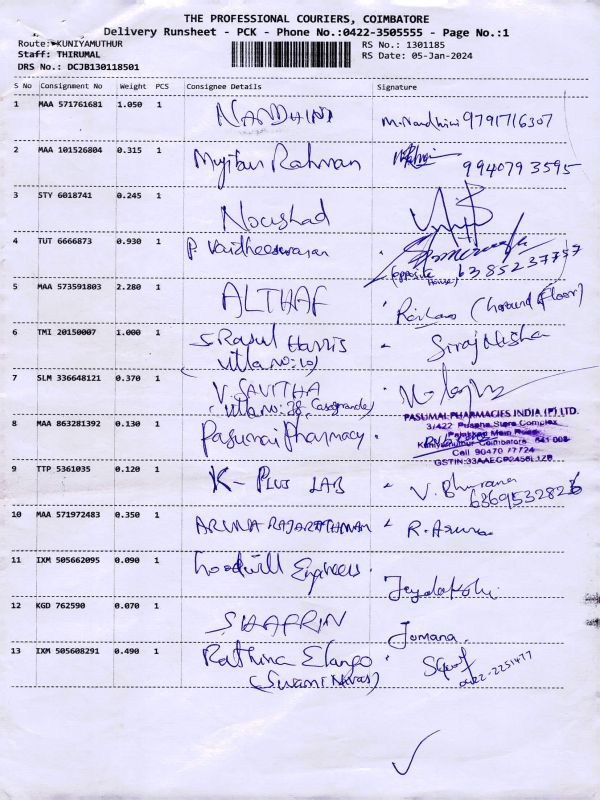 THE PROFESSIONAL COURIERS, COIMBATORE
Delivery Runsheet - PCK - Phone No.:0422-3505555 - Page No.:1
Route: KUNIYAMUTHUR
RS No.: 1301185
Staff: THIRUMAL
RS Date: 05-Jan-2024
DRS No.: DCJB130118501
S No Consignment No Weight PCS Consignee Details Signature
1 MAA 571761681 1.050 1 NANDHINI M. Nandhini 9791716307
2 MAA 101526804 0.315 1 Mujibur Rahman
9940793595
3 STY 6018741 0.245 1 Noushad
4 TUT 6666873 0.930 1 P. Vaidheeswaran
(opposite House) 6385237757
5 MAA 573591803 2.280 1 ALTHAF (Ground Floor)
6 TMI 20150007 1.000 1 S. Rasul Harris Siraj Nisha
(Villa no: 10)
7 SLM 336648121 0.370 1 V. SAVITHA
(Villa no: 38, Casagrande)
PASUMAI PHARMACIES INDIA (P) LTD.
8 MAA 863281392 0.130 1 Pasumai Pharmacy.
3/422 Pushpa Store Complex
Palakkad Main Road
Kuniyamuthur Coimbatore 641 008
Cell 90470 77724
GSTIN:33AAECP2456L1ZB
9 TTP 5361035 0.120 1 K- PLUS LAB V. Bhuvana
6369532826
10 MAA 571972483 0.350 1 ARUNA RAJARATHINAM R. Aruna
11 IXM 505662095 0.090 1 Goodwill Engineers. Jeyalakshi
12 KGD 762590 0.070 1 SHAFRIN Jumana.
13 IXM 505608291 0.490 1 Rathina Elango
(Swami Nivas) 0422-2251477